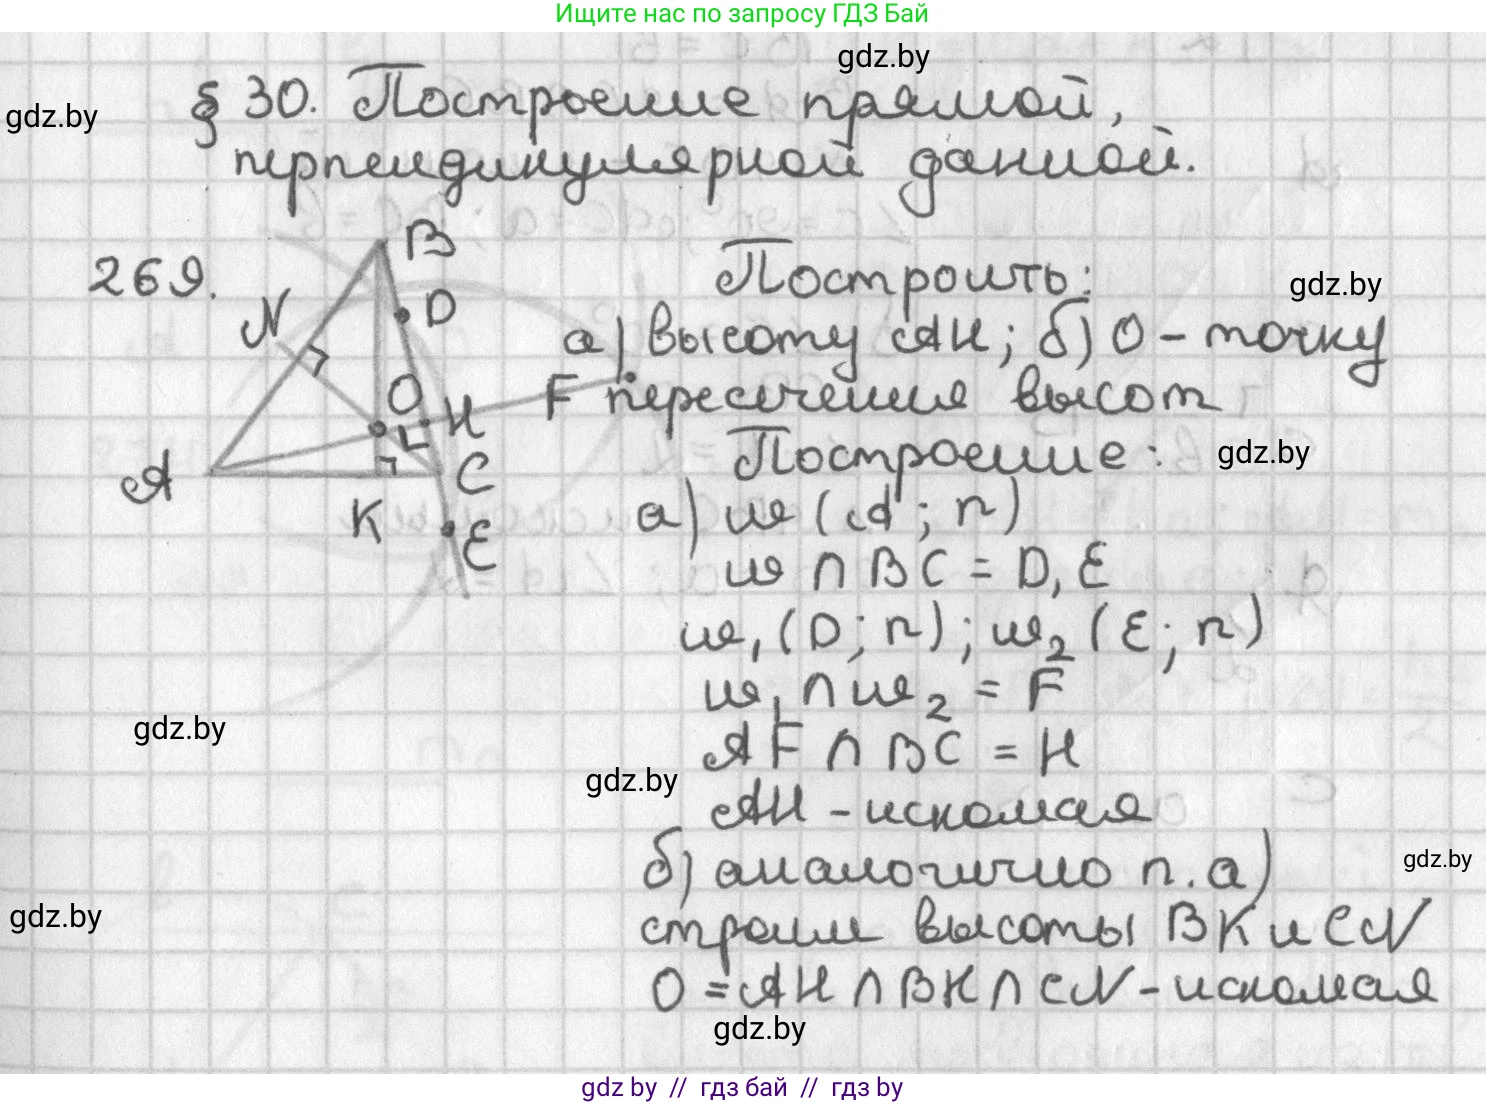 Ищите нас по запросу ГДЗ Бай
gdz.by
§ 30. Построение прямой,
gdz.by
перпендикулярной данной.
269.
B
N
D
O
H
F
A
C
K
E
Построить:
gdz.by
а) высоту AH; б) O - точку
пересечения высот
Построение:
gdz.by
а) ω (A; r)
ω ∩ BC = D, E
ω₁ (D; r); ω₂ (E; r)
ω₁ ∩ ω₂ = F
gdz.by
AF ∩ BC = H
gdz.by
AH - искомая
б) аналогично п. а)
gdz.by
строим высоты BK и CN
gdz.by
O = AH ∩ BK ∩ CN - искомая
gdz.by
gdz.by // гдз бай // гдз by